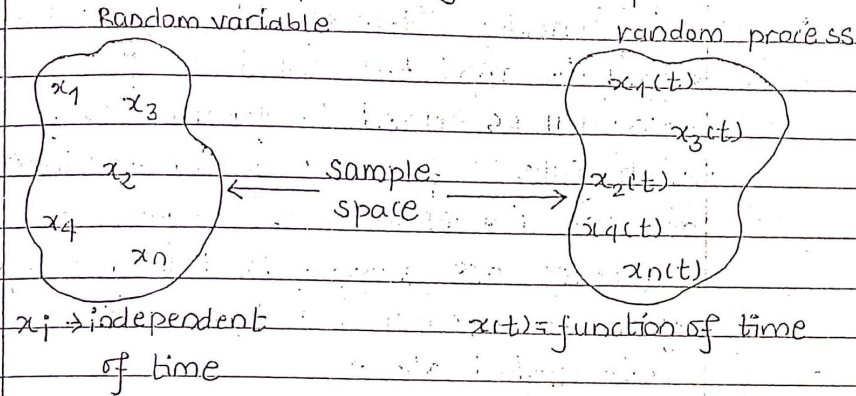 Random variable
random process
x₁
x₃
x₂
x₄
xₙ
sample
space
x₁(t)
x₃(t)
x₂(t)
x₄(t)
xₙ(t)
xᵢ → independent
of time
x(t) = function of time